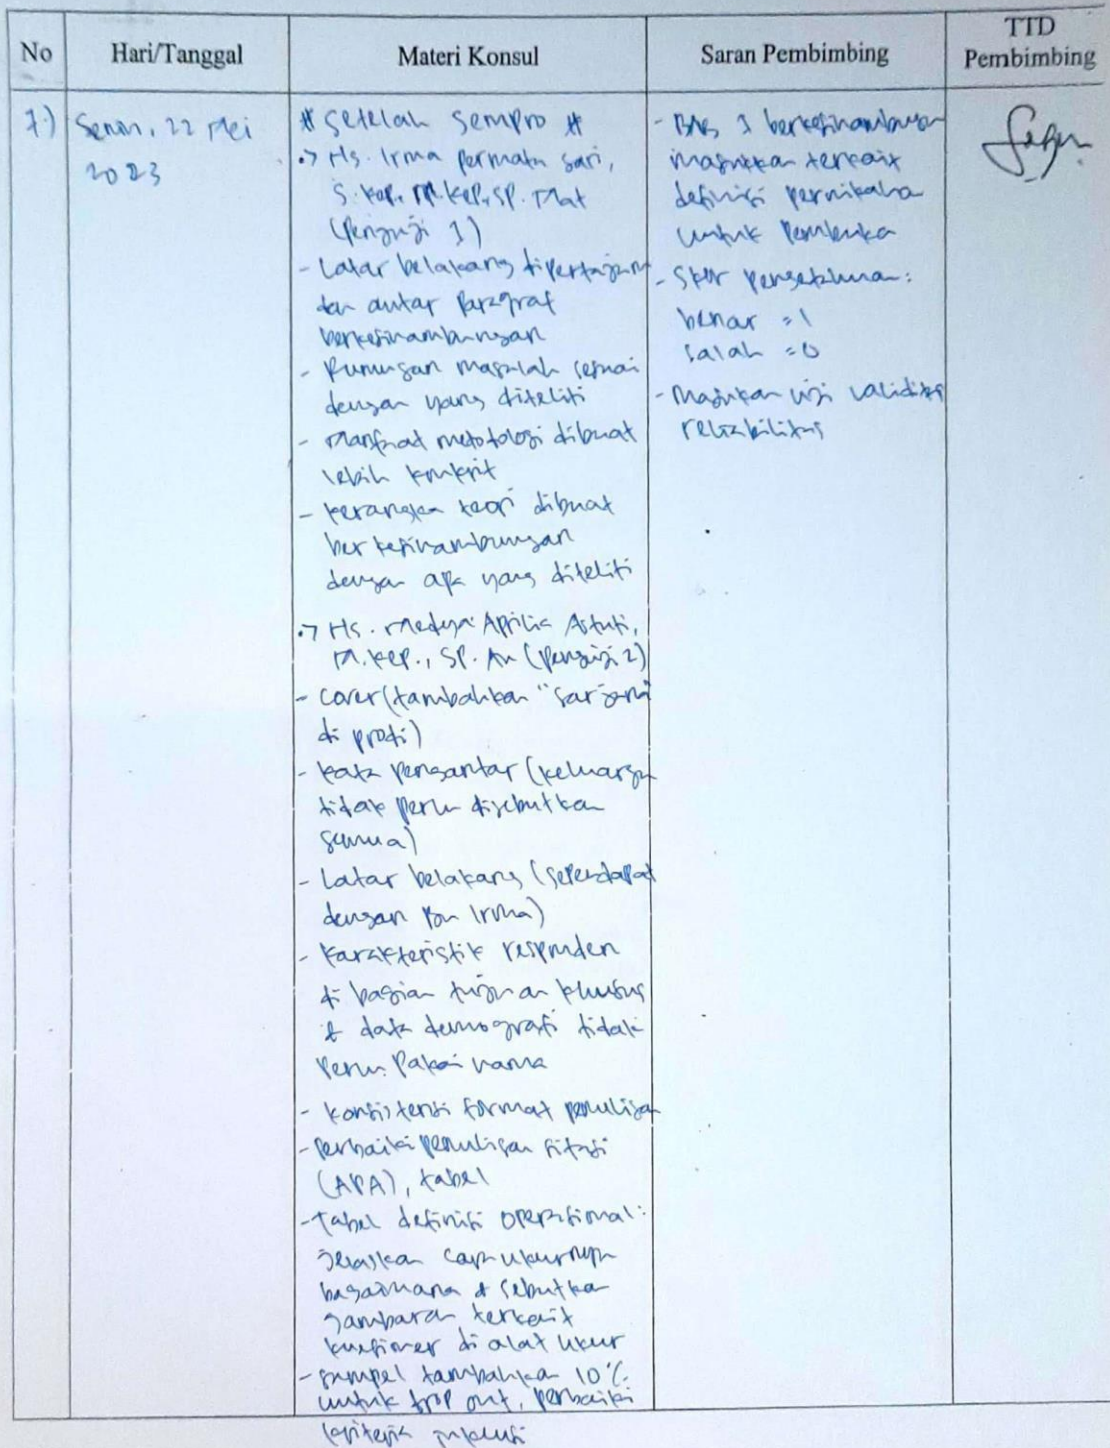 No
Hari/Tanggal
Materi Konsul
Saran Pembimbing
TTD
Pembimbing
7.)
Senin, 22 Mei
2023
# Setelah sempro #
.> Ns. Irma permata sari,
S.Kep., M.Kep., SP. Mat
(Penguji 1)
- Latar belakang dipertajam
dan antar Paragraf
berkesinambungan
- Rumusan masalah sesuai
dengan yang diteliti
- Manfaat metodologi dibuat
lebih konkrit
- kerangka teori dibuat
berkesinambungan
dengan apa yang diteliti
.> Ns. Medya Aprilia Astuti,
M.Kep., SP. An (Penguji 2)
- cover (tambahkan "sarjana"
di prodi)
- kata pengantar (keluarga
tidak perlu disebutkan
semua)
- Latar belakang (sependapat
dengan Bu Irma)
- Karakteristik responden
di bagian tujuan khusus
& data demografi tidak
perlu pakai nama
- konsistensi format penulisan
- perbaiki penulisan sitasi
(APA), tabel
- tabel definisi operasional:
jelaskan cara ukurnya
bagaimana & sebutkan
gambaran terkait
kuesioner di alat ukur
- sampel tambahkan 10%
untuk drop out, perbaiki
kriteria inklusi
- BAB 1 berkesinambungan
masukkan terkait
definisi pernikahan
untuk pembuka
- Skor pengetahuan:
benar = 1
salah = 0
- Masukan uji validitas
reliabilitas